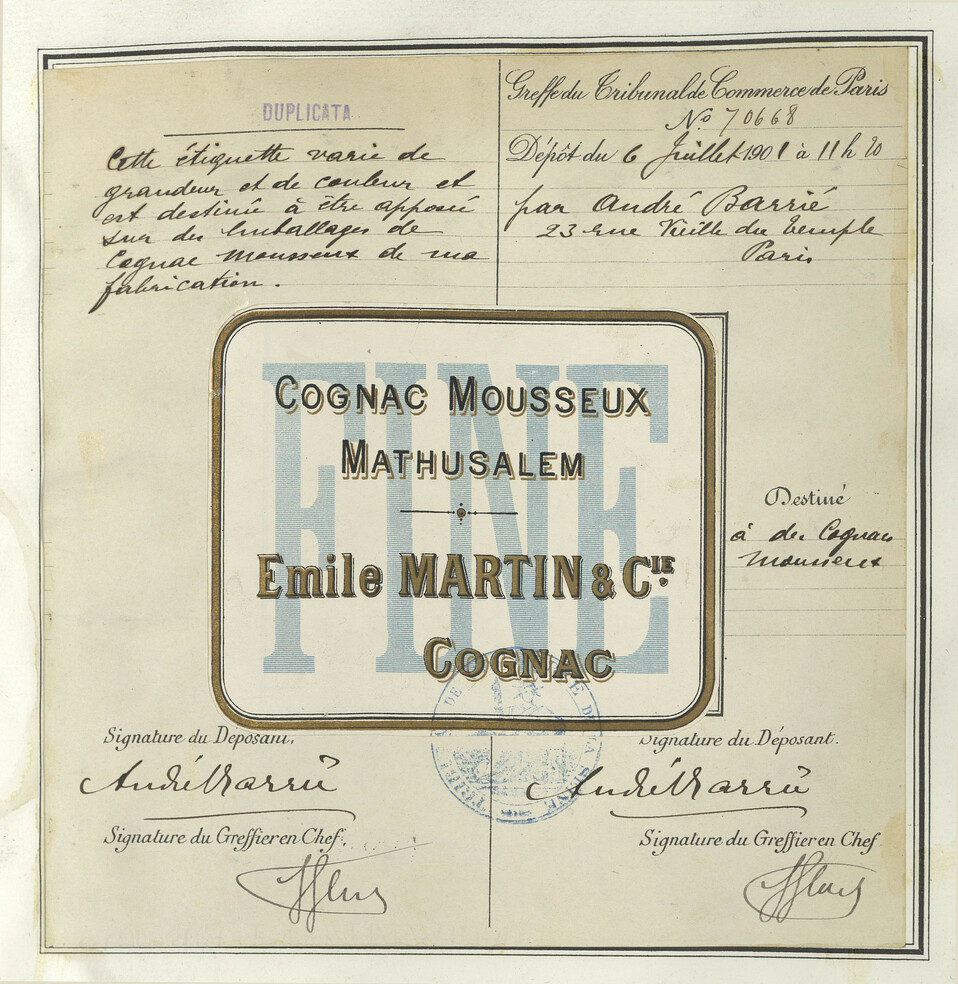 DUPLICATA
Cette étiquette varie de
grandeur et de couleur et
est destinée à être apposée
sur des emballages de
Cognac mousseux de ma
fabrication.
Greffe du Tribunal de Commerce de Paris
No 70668
Dépôt du 6 Juillet 1901 à 11 h 20
par André Barrié
23 rue Vieille du Temple
Paris
FINE
COGNAC MOUSSEUX
MATHUSALEM
Emile MARTIN & CIE.
COGNAC
Destiné
à des Cognacs
mousseux
Signature du Déposant.
André Barrié
Signature du Greffier en Chef.
Signature du Déposant.
André Barrié
Signature du Greffier en Chef